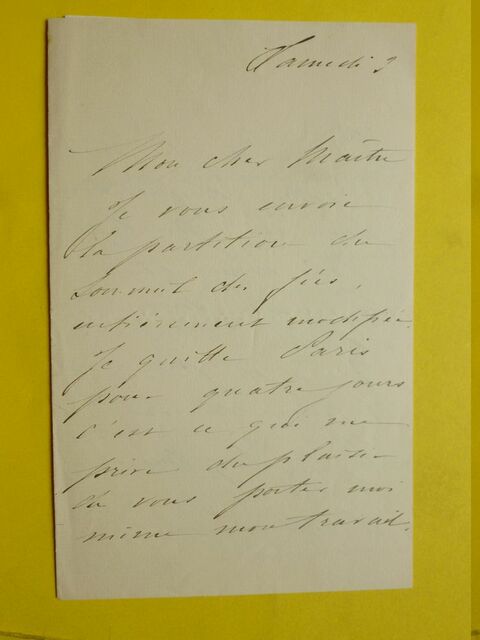 Samedi 3
Mon cher Maître
Je vous envoie
la partition du
Sommeil des fées,
entièrement modifiée.
Je quitte Paris
pour quatre jours
c'est ce qui me
prive du plaisir
de vous porter moi
même mon travail.